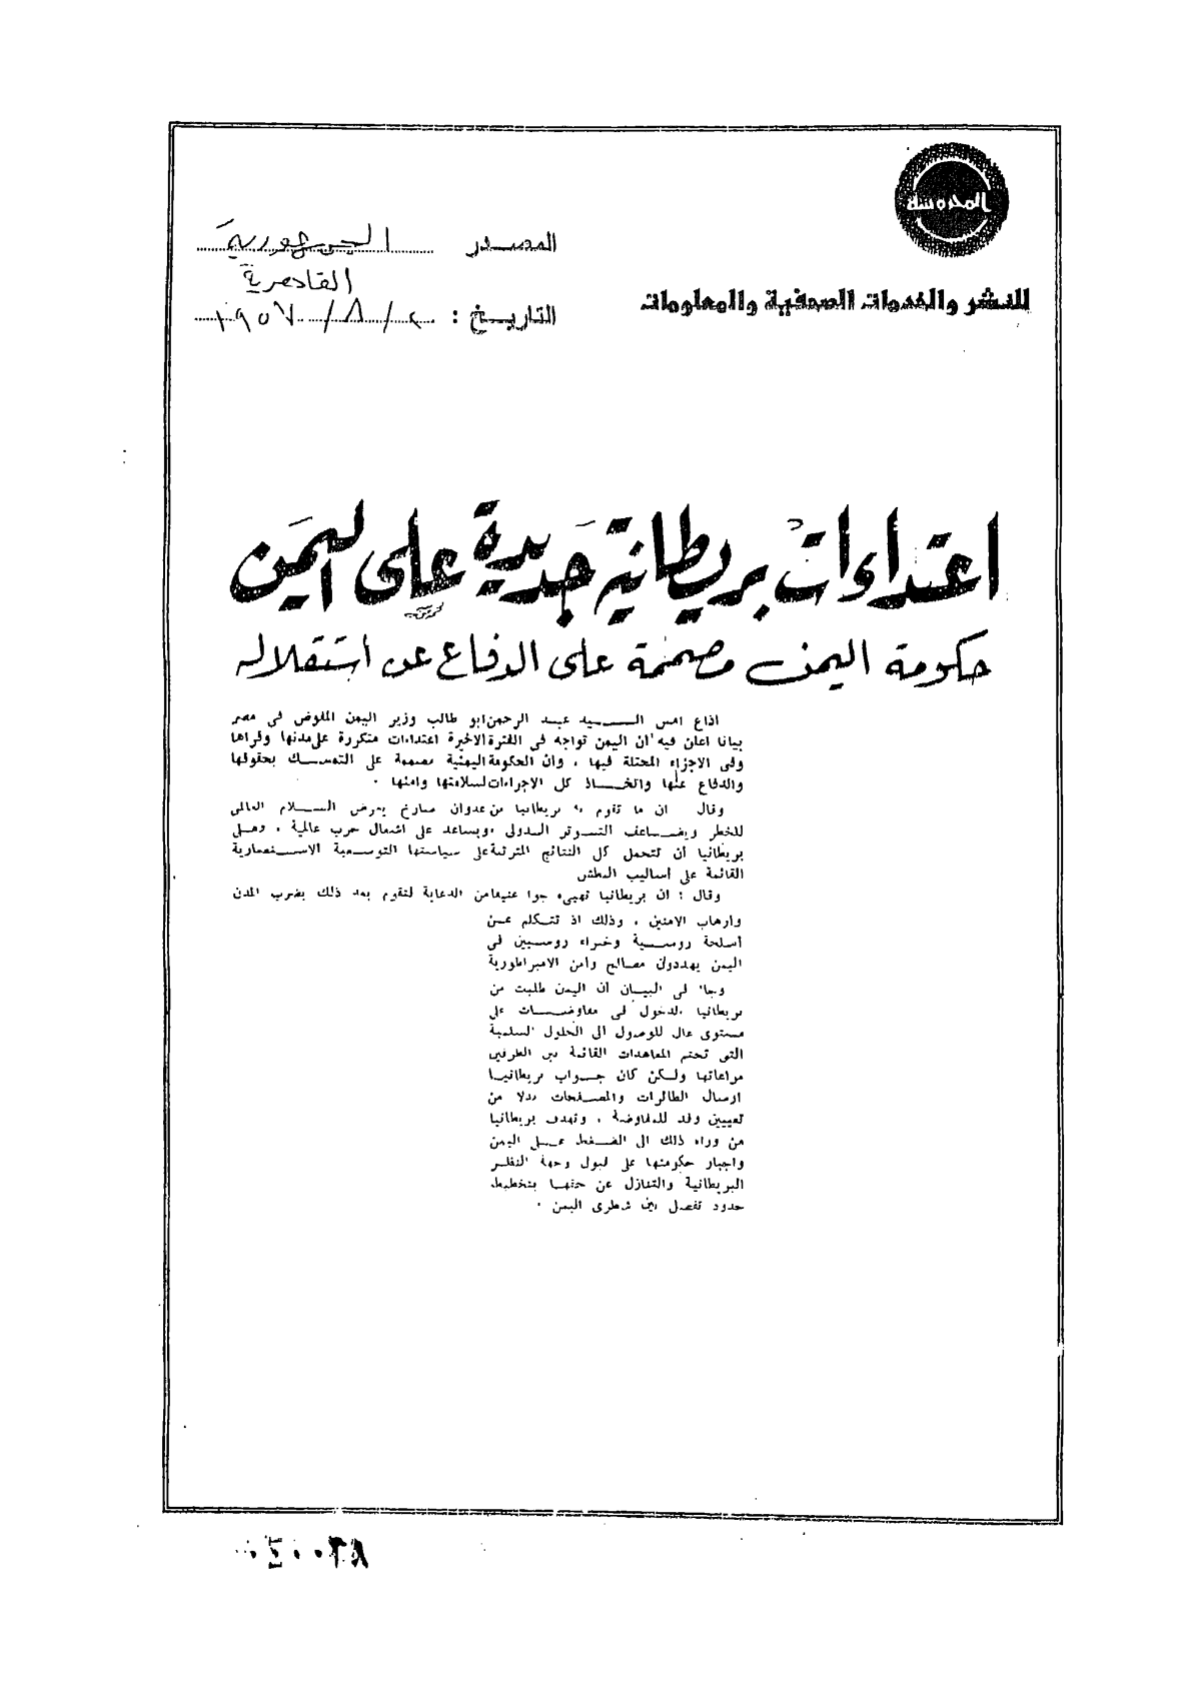 المحروسة
للنشر والخدمات الصحفية والمعلومات
المصدر الجمهورية
القاهرية
التاريخ : ٢ / ٨ / ١٩٥٧
اعتداءات بريطانية جديدة على اليمن
حكومة اليمن مصممة على الدفاع عن استقلاله
اذاع امس السيد عبد الرحمن ابو طالب وزير اليمن المفوض فى مصر
بيانا اعلن فيه أن اليمن تواجه فى الفترة الاخيرة اعتداءات متكررة على مدنها وقراها
وفى الاجزاء المحتلة فيها ، وان الحكومة اليمنية مصممة على التمسك بحقوقها
والدفاع عنها واتخاذ كل الاجراءات لسلامتها وامنها .
وقال ان ما تقوم به بريطانيا من عدوان صارخ يعرض السلام العالمى
للخطر ويضاعف التوتر الدولى ويساعد على اشعال حرب عالمية ، وعلى
بريطانيا أن تتحمل كل النتائج المترتبة على سياستها التوسعية الاستعمارية
القائمة على أساليب البطش
وقال : ان بريطانيا تهيىء جوا عنيفا من الدعاية لتقوم بعد ذلك بضرب المدن
وارهاب الامنين ، وذلك اذ تتكلم عن
أسلحة روسية وخبراء روسيين فى
اليمن يهددون مصالح وامن الامبراطورية
وجاء فى البيان أن اليمن طلبت من
بريطانيا الدخول فى مفاوضات على
مستوى عال للوصول الى الحلول السلمية
التى تحتم المعاهدات القائمة بين الطرفين
مراعاتها ولكن كان جواب بريطانيا
ارسال الطائرات والمصفحات بدلا من
تعيين وفد للمفاوضة ، وتهدف بريطانيا
من وراء ذلك الى الضغط على اليمن
واجبار حكومتها على قبول وجهة النظر
البريطانية والتنازل عن حقها بتخطيط
حدود تفصل بين شطرى اليمن .
٠٤٠٠٢٨